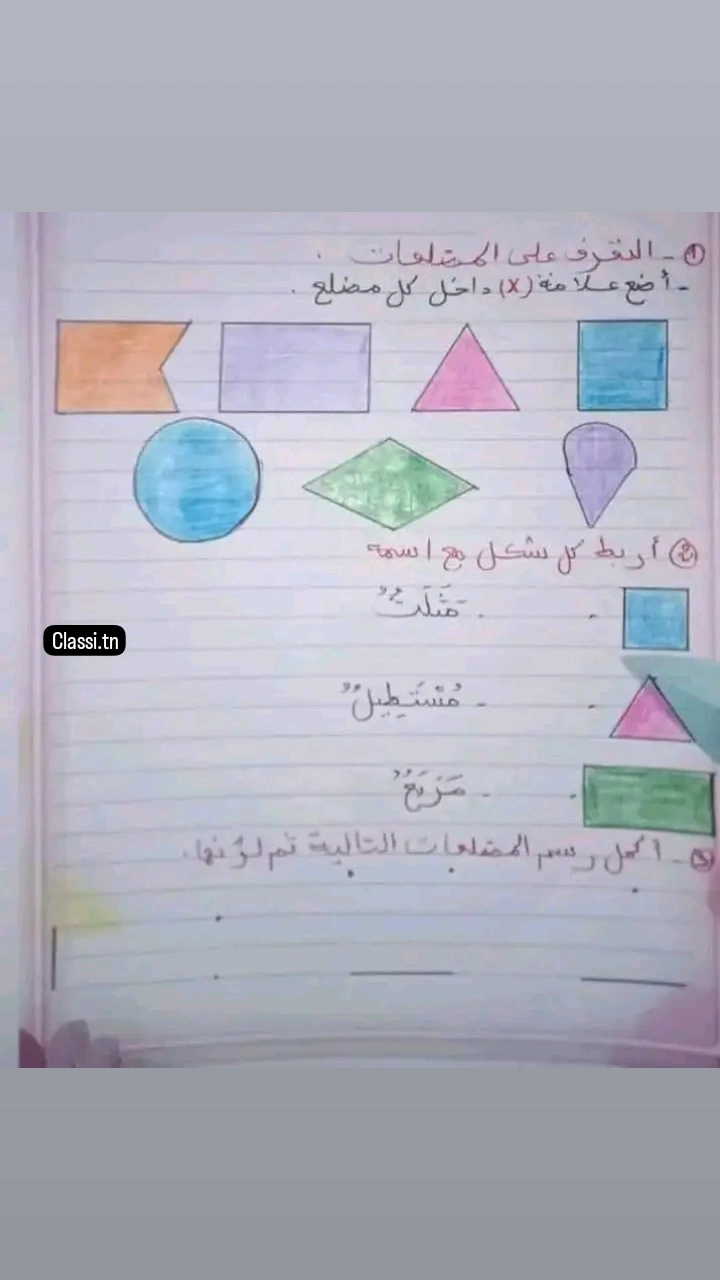 ① - التعرف على المضلعات .
- أضع علامة (x) داخل كل مضلع .
② أربط كل شكل مع اسمه
- مُثَلَّثٌ
Classi.tn
- مُسْتَطِيلٌ
- مُرَبَّعٌ
③ - أكمل رسم المضلعات التالية ثم لوّنها.